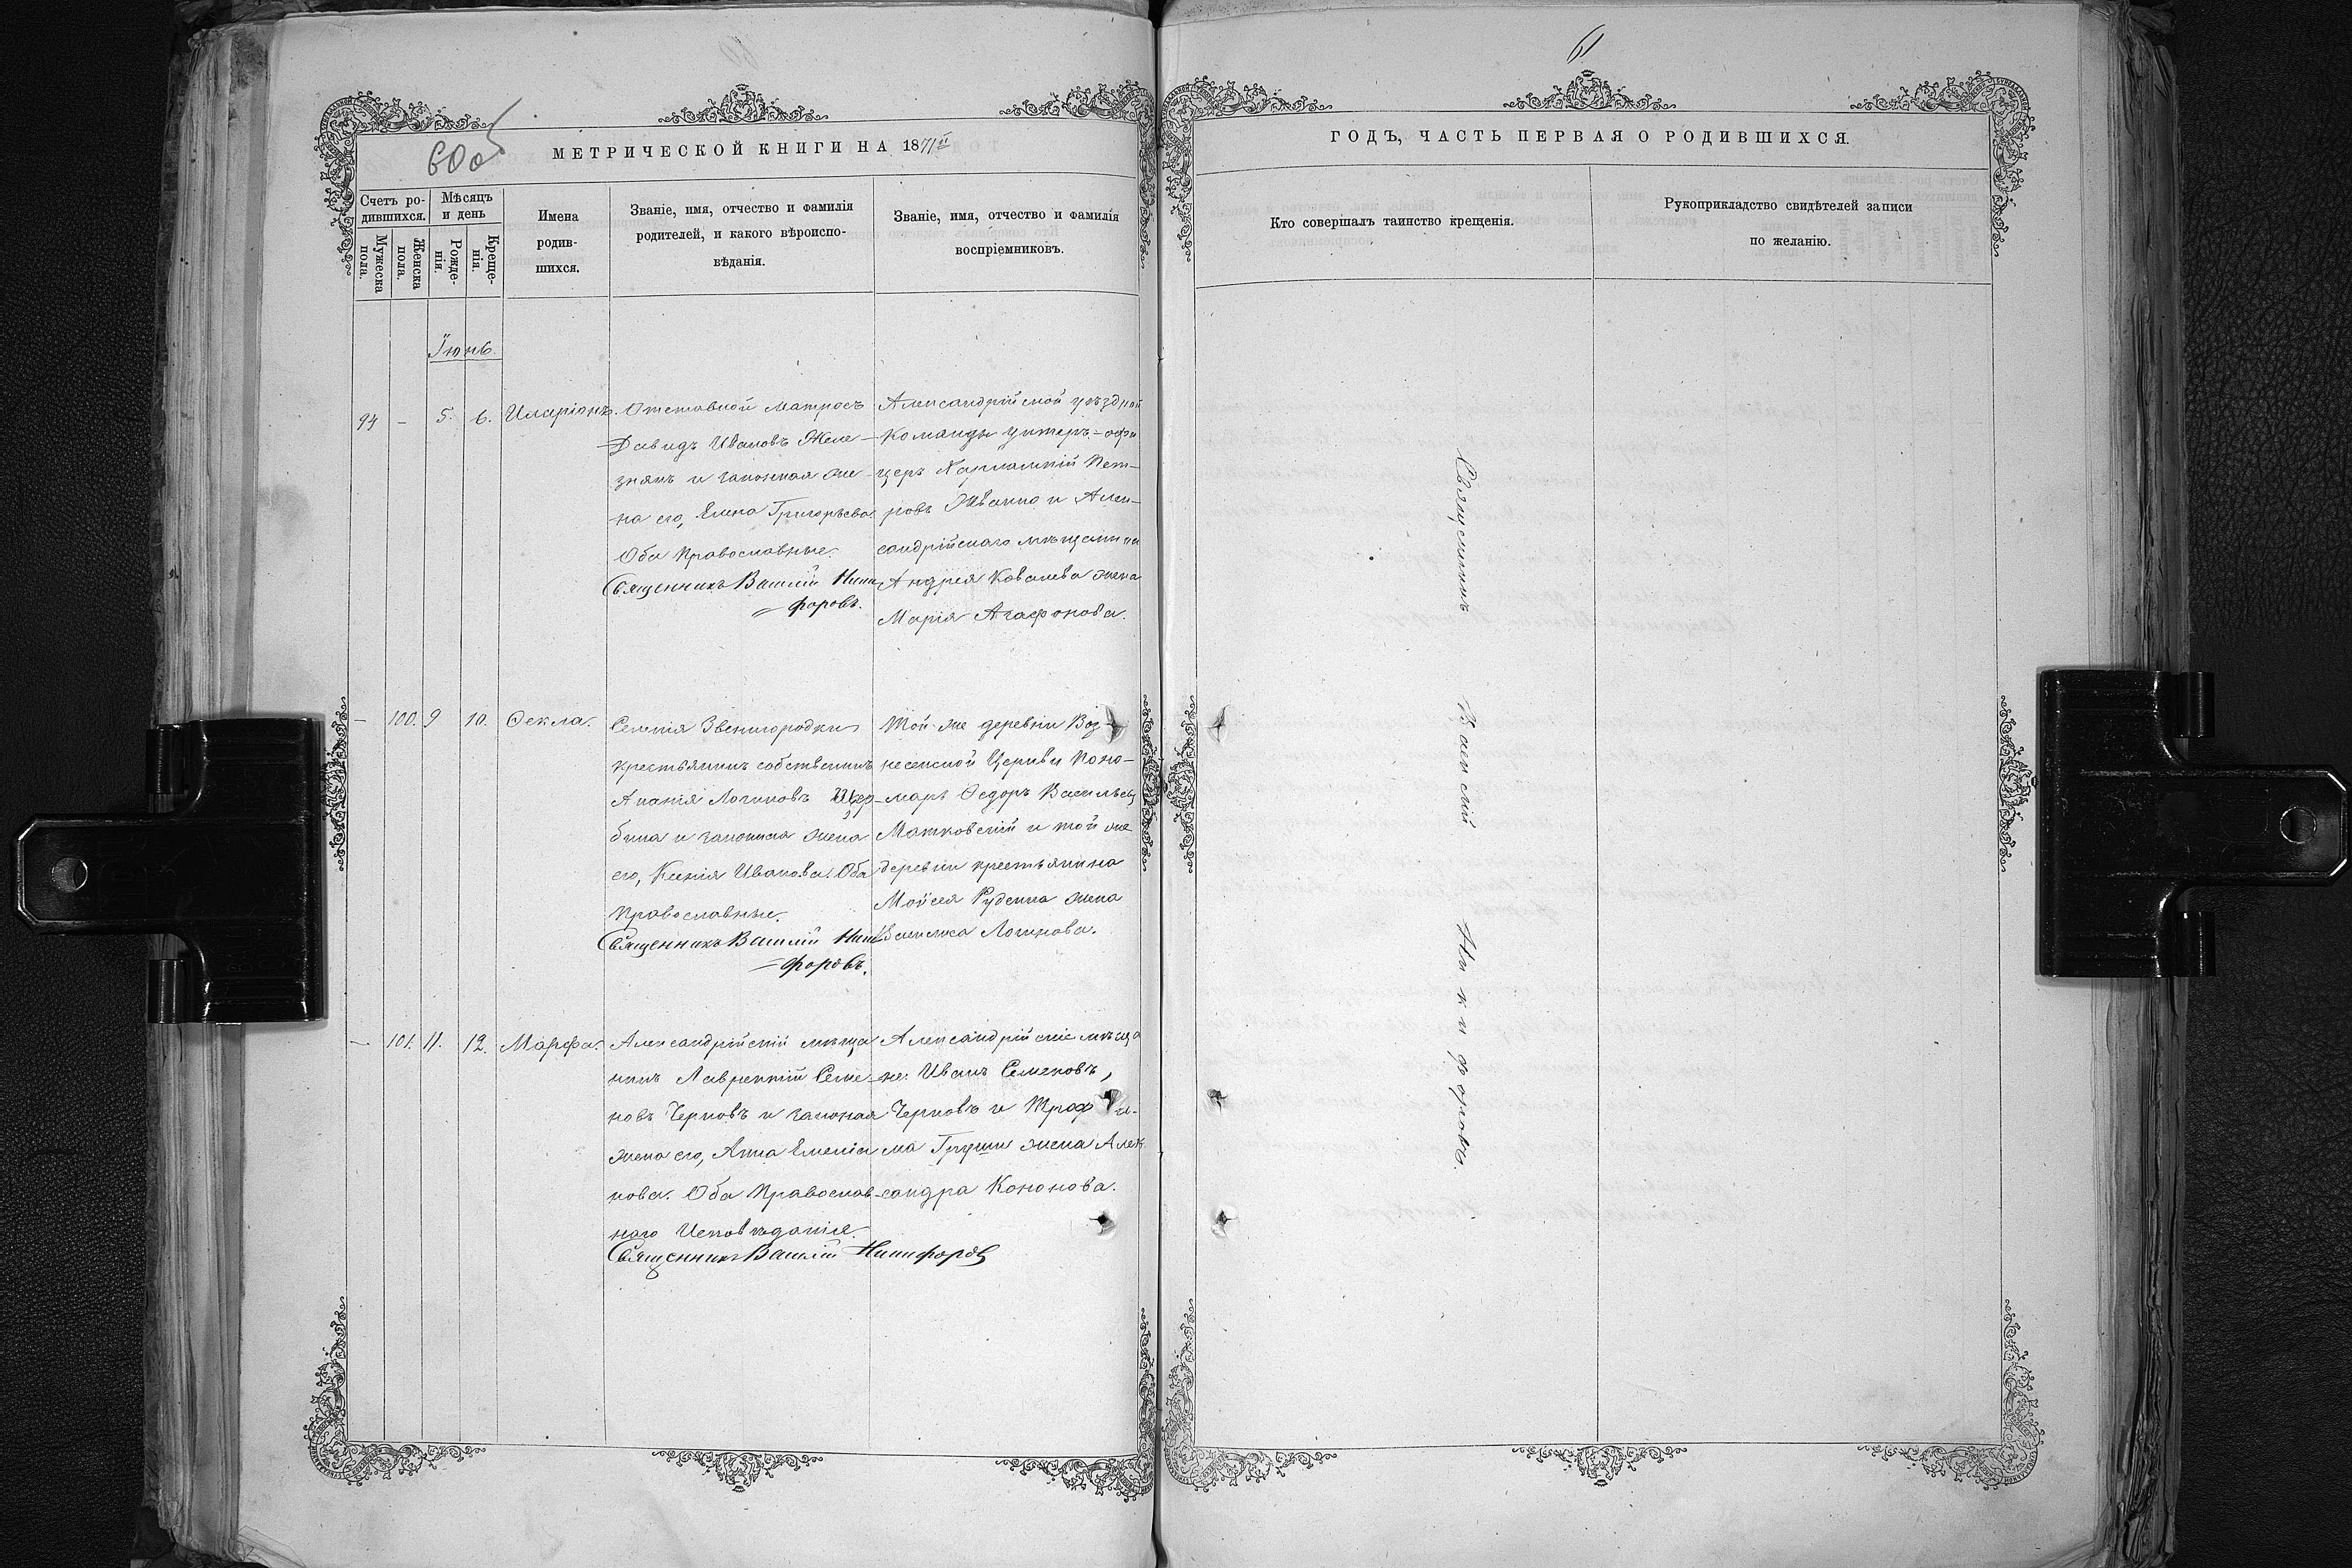 60об
МЕТРИЧЕСКОЙ КНИГИ НА 1871й
Счетъ ро-
дившихся.
Мужеска
пола.
Женска
пола.
Мѣсяцъ
и день
Рожде-
нія.
Креще-
нія.
Имена
родив-
шихся.
Званіе, имя, отчество и фамилія
родителей, и какого вѣроиспо-
вѣданія.
Званіе, имя, отчество и фамилія
воспріемниковъ.
Іюнь.
94 - 5. 6. Иларіонъ.
Отставной матросъ
Давидъ Ивановъ Желе-
знякъ и законная же-
на его, Елена Григорьева
Оба Православные.
Священникъ Василій Ники-
форовъ.
Александрійской уѣздной
Команды унтеръ-офи
церъ Харлампій Пет-
ровъ Ивакно и Алек-
сандрійскаго мѣщанина
Андрея Ковалева жена
Марія Агафонова.
- 100. 9 10. Ѳекла.
Селенія Звенигородки
крестьянинъ собственникъ
Ананія Логиновъ Щер-
бина и законная жена
его, Ксенія Иванова. Оба
Православные.
Священникъ Василій Ники
форовъ.
Той-же деревни Воз-
несенской Церкви Поно-
марь Ѳедоръ Васильевъ
Матковскій и той же
деревни крестьянина
Мойсея Руденка жена
Василиса Логинова.
- 101. 11. 12. Марфа.
Александрійскій мѣща
нинъ Лаврентій Семе-
новъ Черновъ и законая
жена его, Анна Емелія
нова. Оба Православ-
наго Исповѣданія.
Священникъ Василій Никифоровъ
Александрійскіе мѣща
не: Иванъ Семеновъ,
Черновъ и Троф и-
ма Груши жена Алек
сандра Кононова.
61
ГОДЪ, ЧАСТЬ ПЕРВАЯ О РОДИВШИХСЯ.
Кто совершалъ таинство крещенія.
Рукоприкладство свидѣтелей записи
по желанію.
Священникъ Василій Никифоровъ.